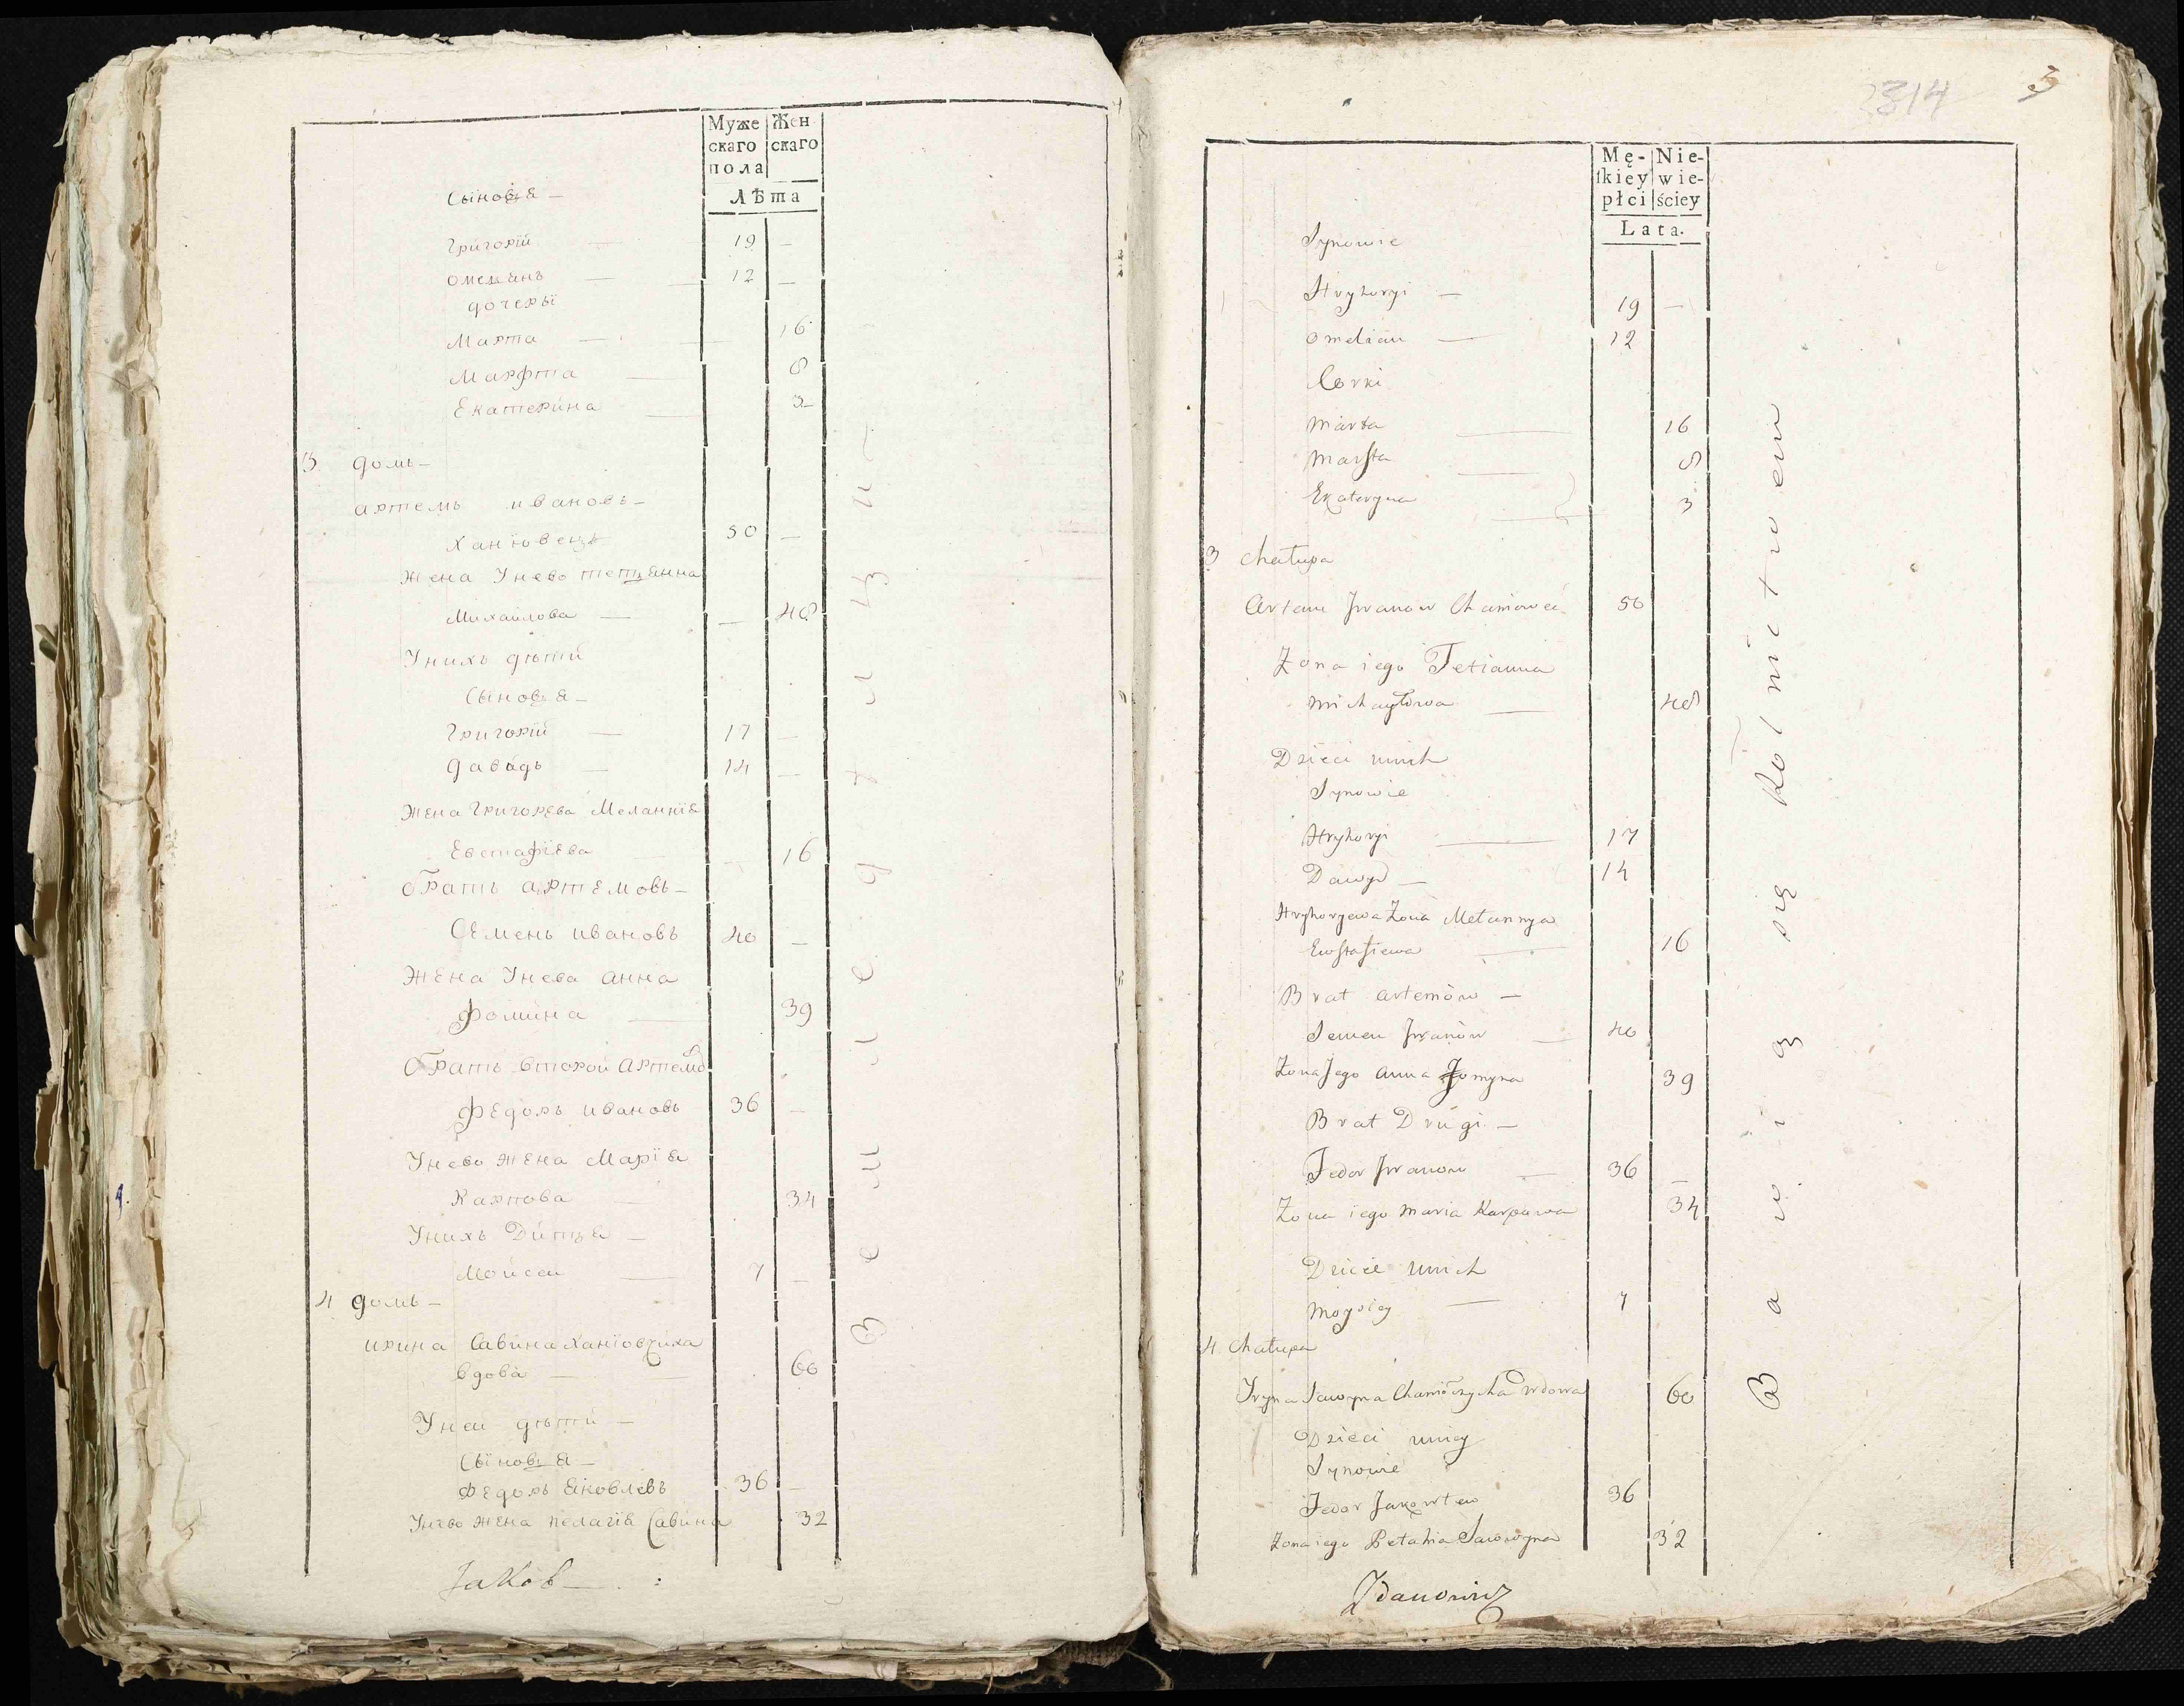 Муже Жен
скаго скаго
пола
Лѣта
Сыновья —
Григорїй — 19 —
Омелянъ — 12 —
дочеры
Марта — 16
Марфта — 8
Екатерина — 3
3 домъ —
артемъ ивановъ —
Ханювецъ 50 —
Жена Унево тетянна
Михаилова — — 48
Унихъ дѣти
Сыновья —
Григорїй — 17 —
давидъ — 14 —
Жена Григорева Меланкїя
Евстафїева — 16
братъ артемовъ —
Семенъ ивановъ 40 —
Жена Унева анна
фомина — 39
братъ второй артемо
федоръ ивановъ 36 —
Унево жена Марїя
Карпова 34
Унихъ Дитя —
Моисеи — 7 —
4 домъ —
ирина Савина Ханїовчиха
вдова — 60
Унеи дѣти —
Сыновья —
Федоръ Яковлевъ 36 —
Унево жена пелагія Савина 32
Земледелецъ
Jaкob —
2314 3
Mę- Nie-
ſkiey wie-
płci ściey
Lata.
Synowie
Hryhoryi — 19 —
Omelian — 12
Corki
Marta — 16
Marfta — 8
Ekateryna — 3
3 Chałupa
Artem Jwanow Chaniowec 50
Zona iego Tetianna
Michayłowa — 48
Dzieci unich
Synowie
Hryhoryi — 17
Dawyd — 14
Hryhoryewa Zona Mełannya
Ewstafiewa — 16
Brat artemów —
Semen Jwanów — 40
Zona Jego Anna Fomyna 39
Brat Drugi —
Fedor Jwanow — 36 —
Zona iego Maria Karpowa 34
Dziecie unich
Moysiey — 7
4 Chałupa
Iryna Sawyna Chaniowczycha wdowa 60
Dzieci uniey
Synowie
Fedor Jakowlew 36
Zona iego Pelahia Sawyna 32
Bawią się Rolnictwem
Zdanowicz